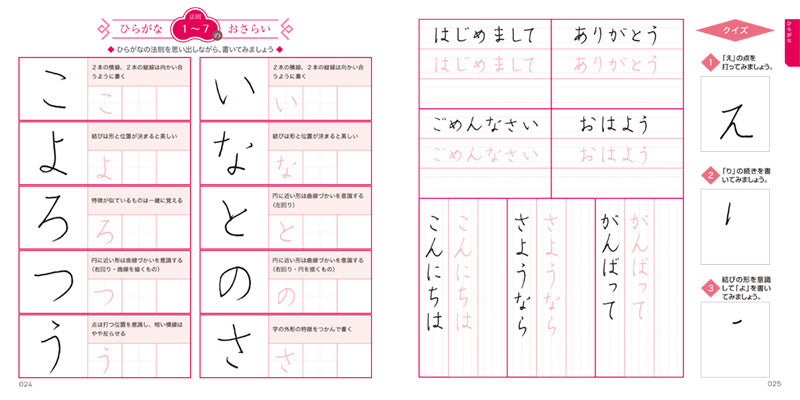 ひらがな 法則 1～7の おさらい
◆ ひらがなの法則を思い出しながら、書いてみましょう ◆
こ
2本の横線、2本の縦線は向かい合
うように書く
こ
い
2本の横線、2本の縦線は向かい合
うように書く
い
よ
結びは形と位置が決まると美しい
よ
な
結びは形と位置が決まると美しい
な
ろ
特徴が似ているものは一緒に覚える
ろ
と
円に近い形は曲線づかいを意識する
(左回り)
と
つ
円に近い形は曲線づかいを意識する
(右回り・曲線を描くもの)
つ
の
円に近い形は曲線づかいを意識する
(右回り・円を描くもの)
の
う
点は打つ位置を意識し、短い横線は
やや反らせる
う
さ
字の外形の特徴をつかんで書く
さ
024
はじめまして
はじめまして
ありがとう
ありがとう
ごめんなさい
ごめんなさい
おはよう
おはよう
がんばって
がんばって
さようなら
さようなら
こんにちは
こんにちは
ひらがな
クイズ
1
「え」の点を
打ってみましょう。
2
「り」の続きを書
いてみましょう。
3
結びの形を意識
して「よ」を書い
てみましょう。
025